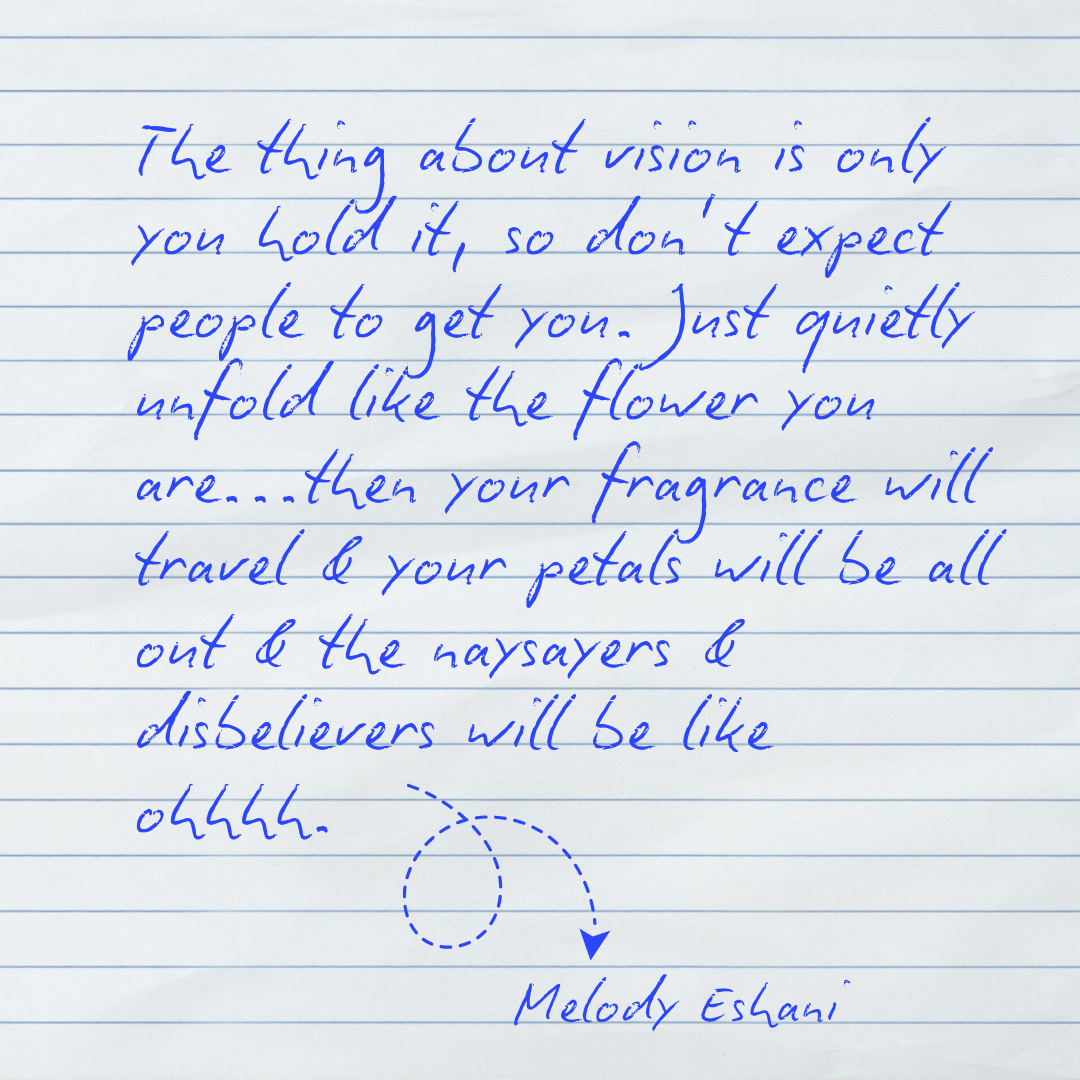 The thing about vision is only
you hold it, so don't expect
people to get you. Just quietly
unfold like the flower you
are...then your fragrance will
travel & your petals will be all
out & the naysayers &
disbelievers will be like
ohhhh.
Melody Eshani